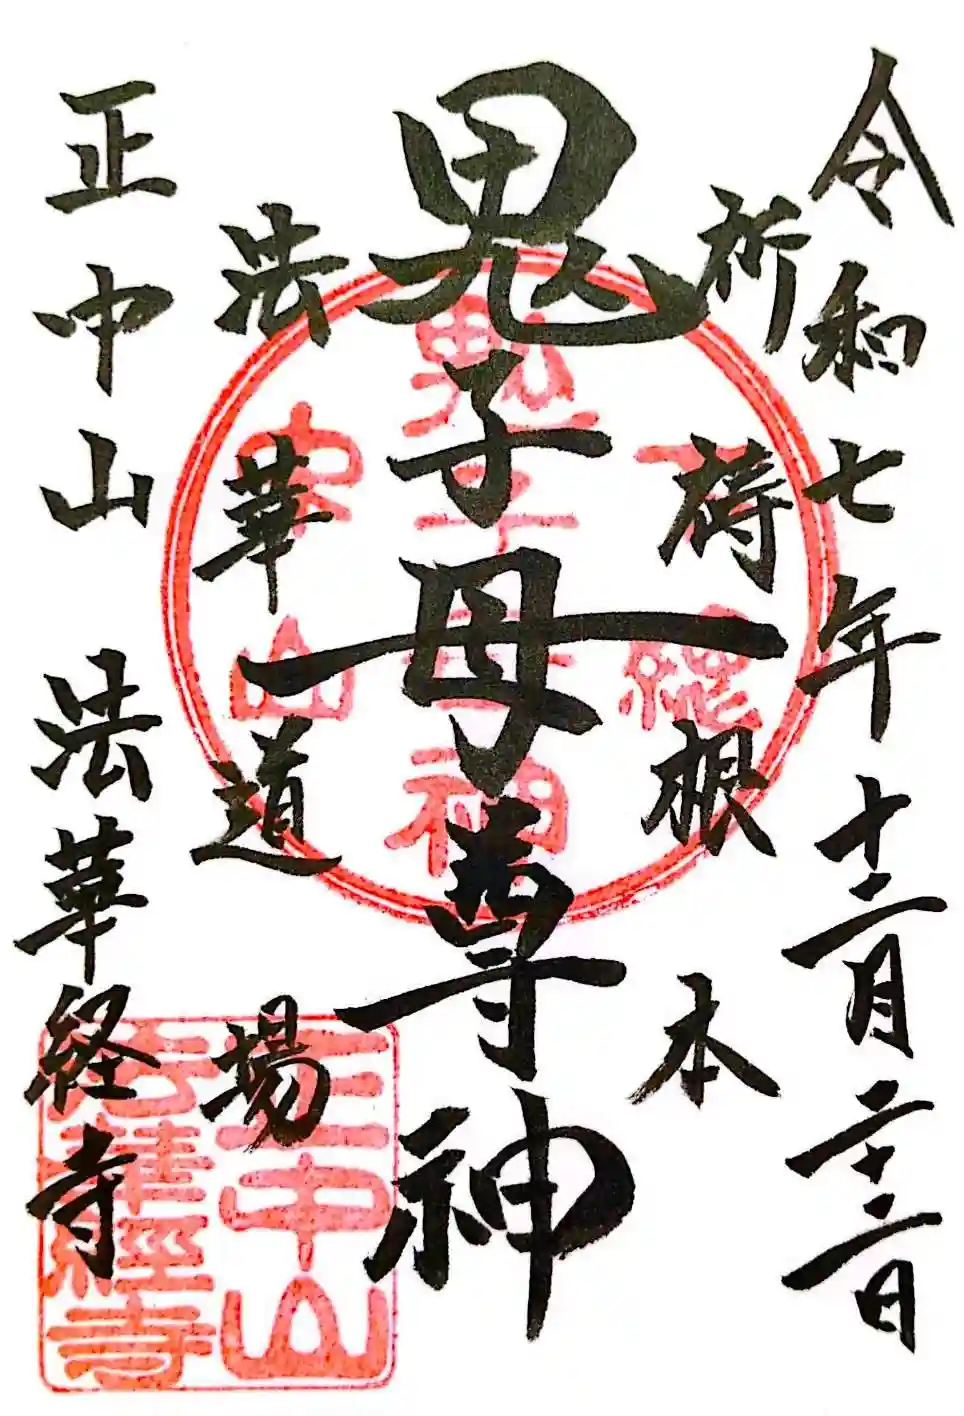 令和七年十二月二十二日
祈祷根本
鬼子母尊神
法華道場
正中山 法華経寺
下總
鬼子母神
中山
正中山
法華經寺